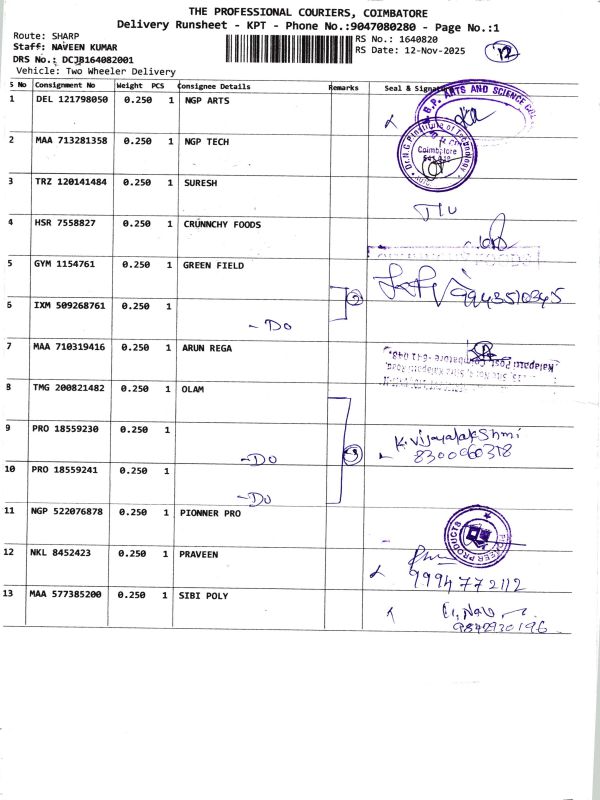 THE PROFESSIONAL COURIERS, COIMBATORE
Delivery Runsheet - KPT - Phone No.:9047080280 - Page No.:1
Route: SHARP RS No.: 1640820
Staff: NAVEEN KUMAR RS Date: 12-Nov-2025
DRS No.: DCJB164082001
Vehicle: Two Wheeler Delivery
S No Consignment No Weight PCS Consignee Details Remarks Seal & Signature
1 DEL 121798050 0.250 1 NGP ARTS
ARTS AND SCIENCE
2 MAA 713281358 0.250 1 NGP TECH
Dr.N.G.P.Institute of Technology
Coimbatore
3 TRZ 120141484 0.250 1 SURESH
4 HSR 7558827 0.250 1 CRUNNCHY FOODS
5 GYM 1154761 0.250 1 GREEN FIELD
9943510345
6 IXM 509268761 0.250 1
- Do
7 MAA 710319416 0.250 1 ARUN REGA
Kalapatti Post, Coimbatore - 641 048.
8 TMG 200821482 0.250 1 OLAM
9 PRO 18559230 0.250 1
- Do
K. Vijayalakshmi
8300060378
10 PRO 18559241 0.250 1
- Do
11 NGP 522076878 0.250 1 PIONNER PRO
PIONEER PRODUCTS
12 NKL 8452423 0.250 1 PRAVEEN
9994772112
13 MAA 577385200 0.250 1 SIBI POLY
9842930196